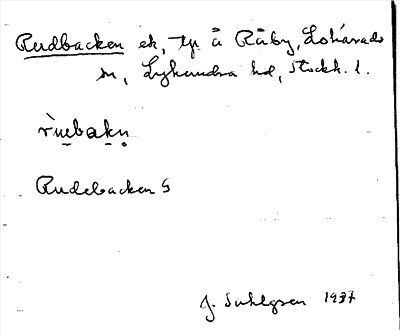 Rudbacken ek, tp å Råby, Lohärads
sn, Lyhundra hd, Stockh. l.
rù̀ebakn̥
Rudebacken G
J. Sahlgren 1937